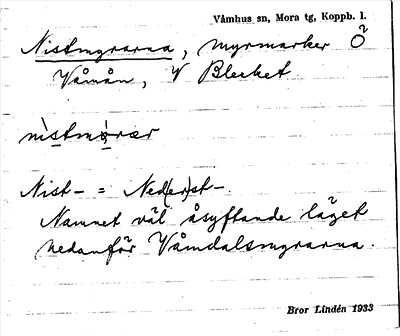 Våmhus sn, Mora tg, Koppb. l.
Nistmyrarna, myrmarker Ö
Våmån, V Blecket.
nìstmỳrær
Nist- = Ned(er)st-.
Namnet väl åsyftande läget
nedanför Våmdalsmyrarna.
Bror Lindén 1933